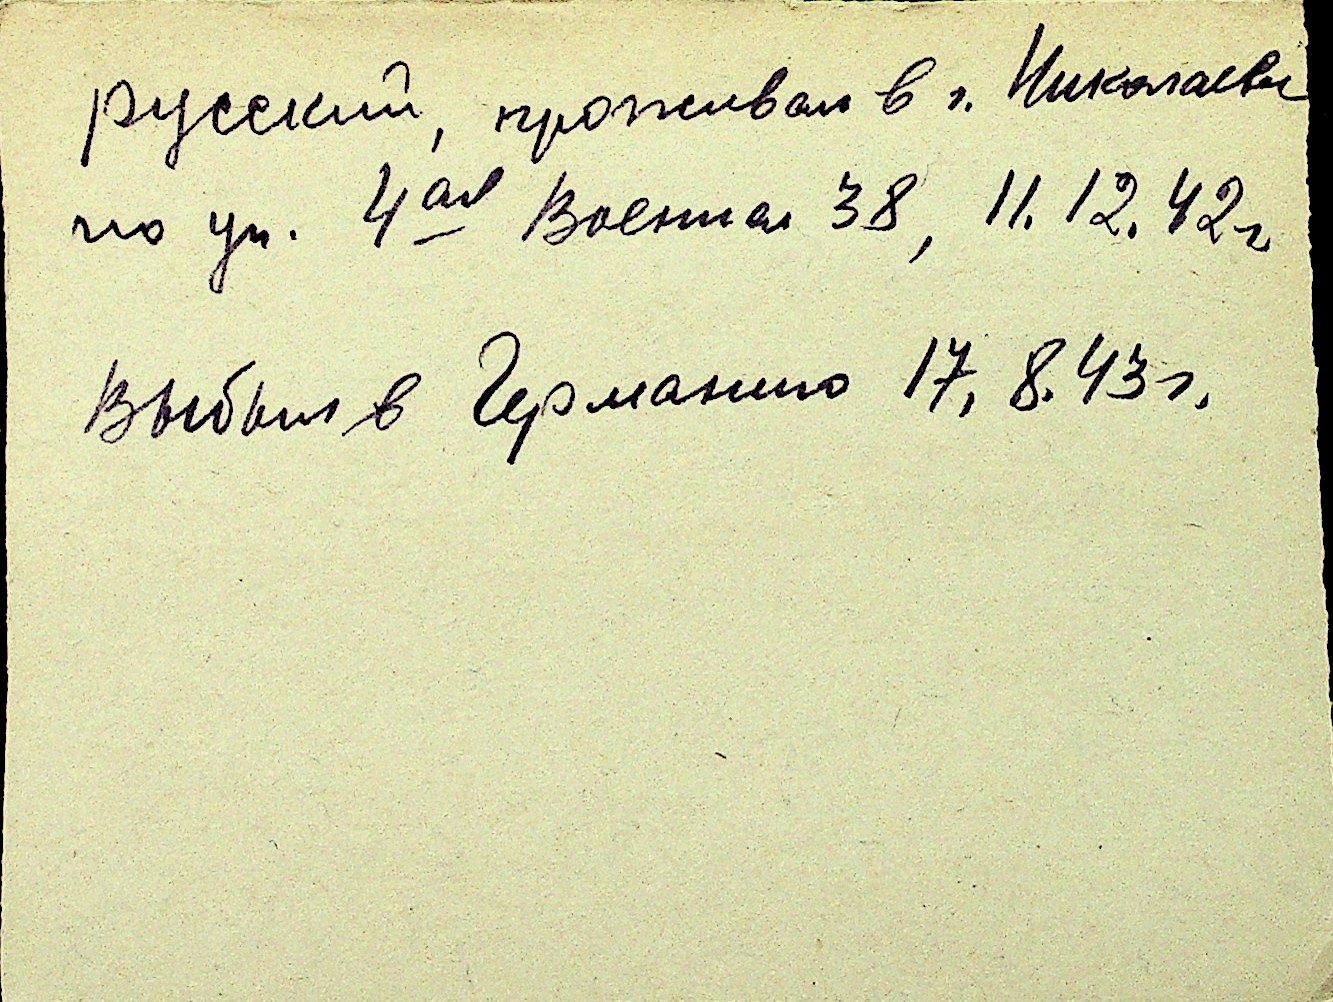 русский, проживал в г. Николаеве
по ул. 4ая Военная 38, 11.12.42г
Выбыл в Германию 17.8.43г.